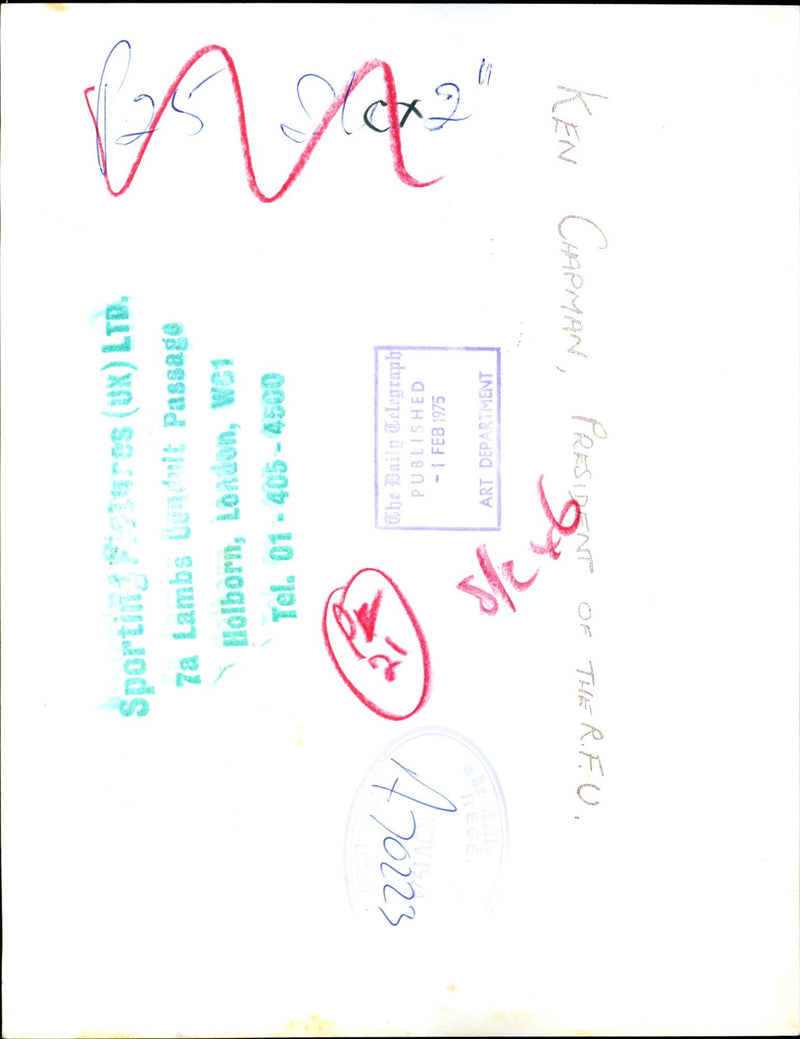 P25 S/c x 2"
KEN CHAPMAN, PRESIDENT OF THE R.F.U.
Sporting Pictures (UK) LTD.
7a Lambs Conduit Passage
Holborn, London, WC1
Tel. 01-405-4500
The Daily Telegraph
PUBLISHED
-1 FEB 1975
ART DEPARTMENT
S/C x 6
21
A70223